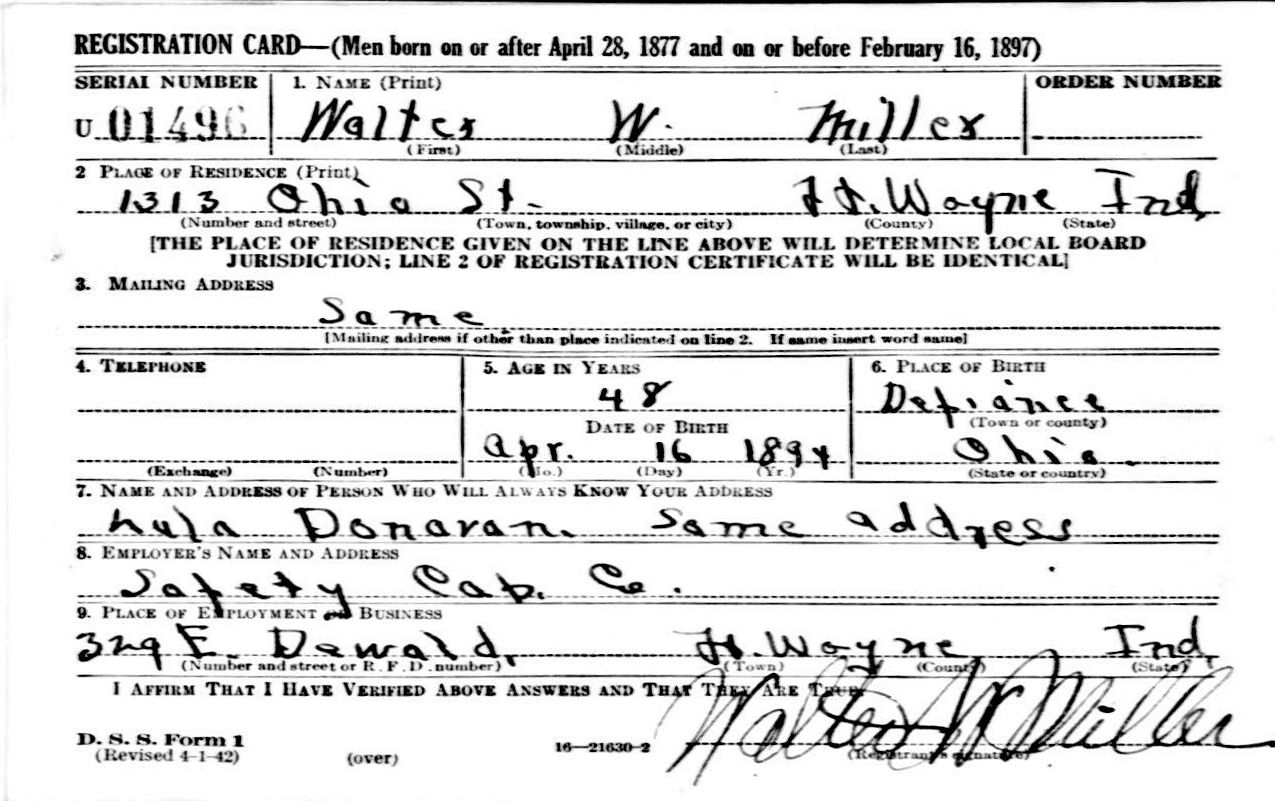 REGISTRATION CARD—(Men born on or after April 28, 1877 and on or before February 16, 1897)
SERIAL NUMBER 1. NAME (Print) ORDER NUMBER
U 01496 Walter W. Miller
(First) (Middle) (Last)
2 PLACE OF RESIDENCE (Print)
1313 Ohio St. Ft. Wayne Ind.
(Number and street) (Town, township, village, or city) (County) (State)
[THE PLACE OF RESIDENCE GIVEN ON THE LINE ABOVE WILL DETERMINE LOCAL BOARD
JURISDICTION; LINE 2 OF REGISTRATION CERTIFICATE WILL BE IDENTICAL]
3. MAILING ADDRESS
Same
[Mailing address if other than place indicated on line 2. If same insert word same]
4. TELEPHONE 5. AGE IN YEARS 6. PLACE OF BIRTH
48 Defiance
DATE OF BIRTH (Town or county)
Apr. 16 1894 Ohio.
(Exchange) (Number) (Mo.) (Day) (Yr.) (State or country)
7. NAME AND ADDRESS OF PERSON WHO WILL ALWAYS KNOW YOUR ADDRESS
Lula Donavan. Same address
8. EMPLOYER'S NAME AND ADDRESS
Safety Cap. Co.
9. PLACE OF EMPLOYMENT OR BUSINESS
329 E. Dewald, Ft. Wayne Ind.
(Number and street or R. F. D. number) (Town) (County) (State)
I AFFIRM THAT I HAVE VERIFIED ABOVE ANSWERS AND THAT THEY ARE TRUE.
Walter W Miller
D. S. S. Form 1
(Revised 4-1-42) (over) 16—21630-2 (Registrant's signature)